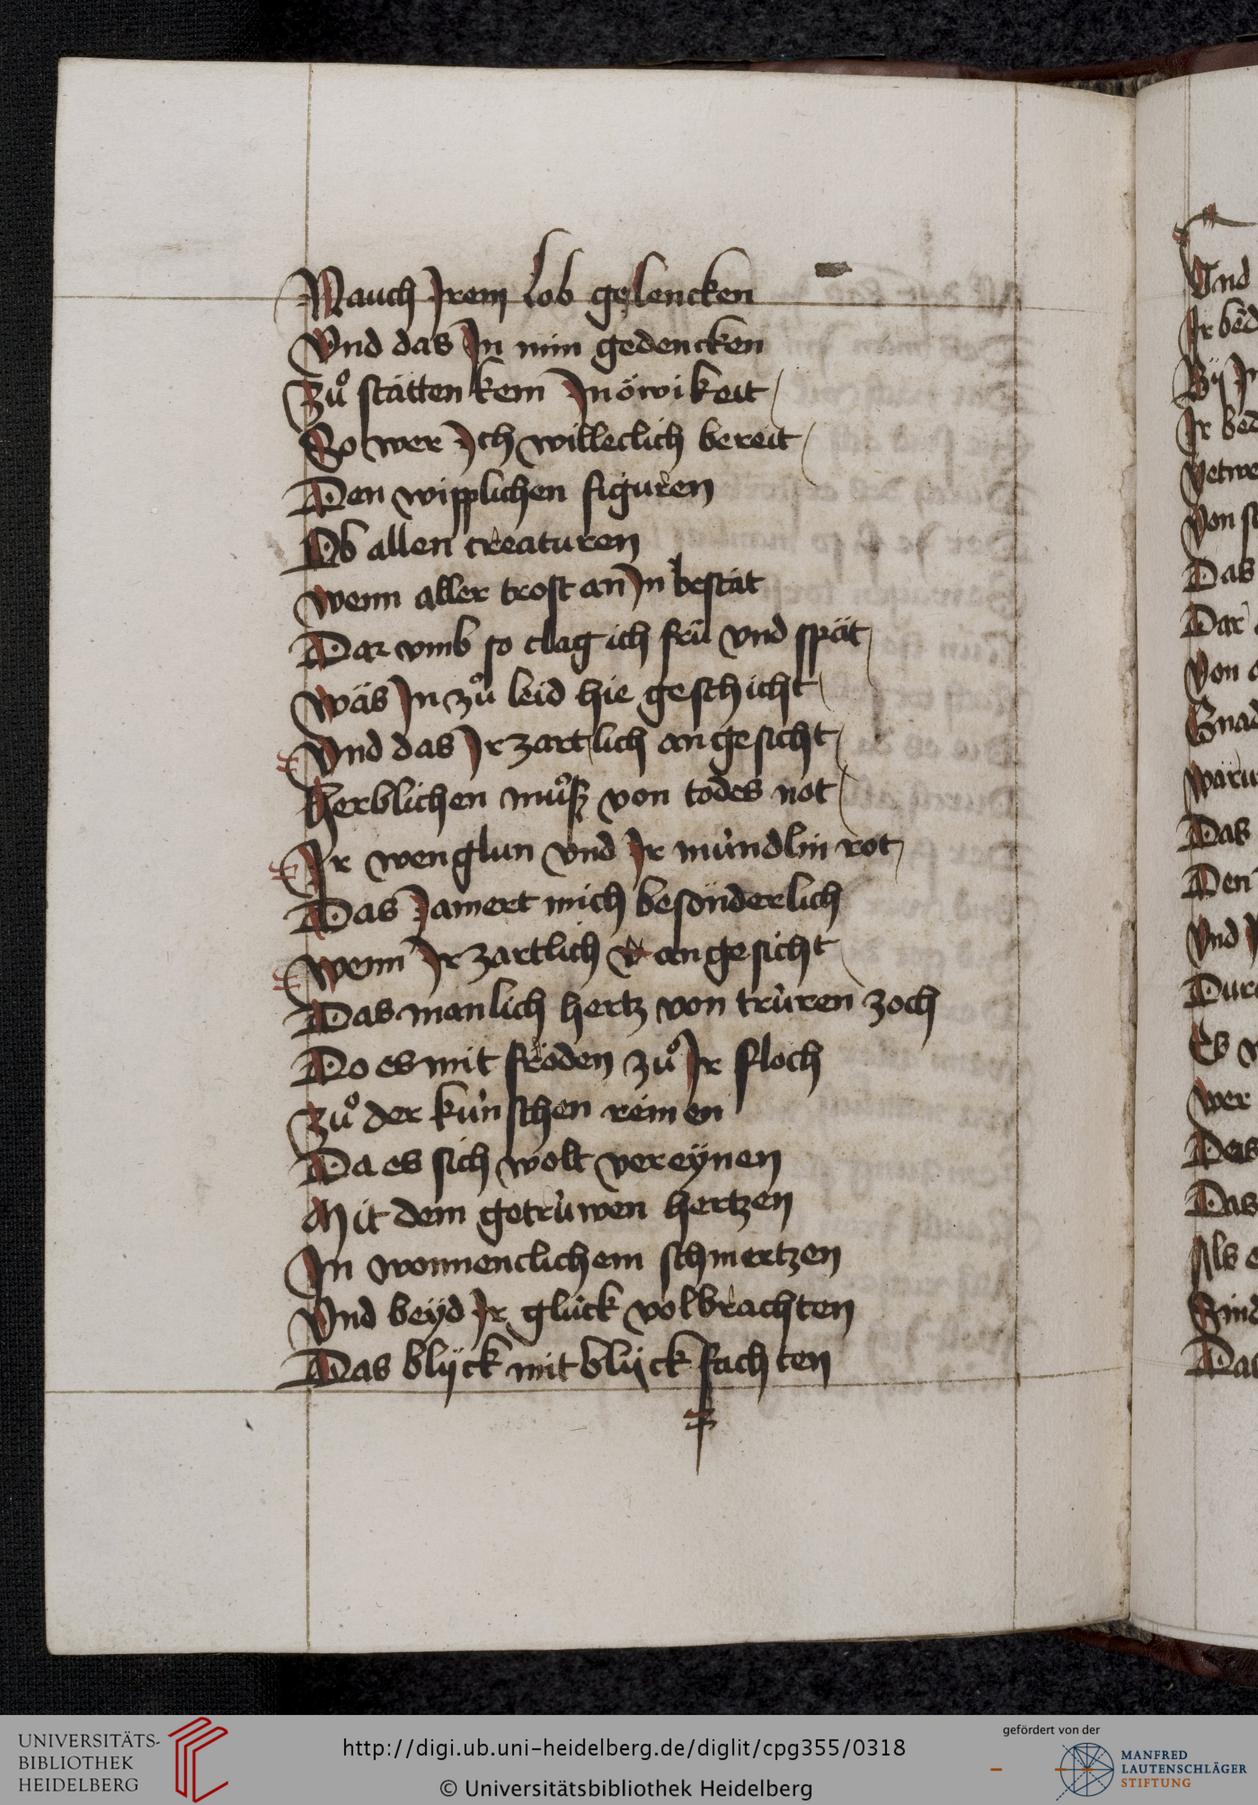 Nauch Irem lob gelencken
Vnd das In mim gedencken
Zuͦ stätten kem In öwikeit
So wer Ich willeclich bereit
Den wipplichen figuren
Ob allen creaturen
Wenn aller trost an In bestät
Dar vmb so clag ich frü vnd spät
Wäs In zuͦ leid hie geschicht
Vnd das Ir zartlich angesicht
Herblichen muͦsz von todes not
Ir wenglun vnd Ir mündlin rot
Das Jamert mich besönderlich
Wenn Ir zartlich angesicht
Das manlich hertz von trüren zoch
Do es mit fröden zuͦ Ir floch
Zuͦ der künschen reinen
Da es sich wolt vereÿnen
Mit dem getrüwen hertzen
In wonnenclichem schmertzen
Vnd beÿd Ir glück volbrachten
Das blÿck mit blÿck fachten
Vnd
Ir
Bÿ
Ir
Von
Das
Dar
Von
Das
Den
Vnd
Es
Wer
Das
Als
Das
UNIVERSITÄTS-
BIBLIOTHEK
HEIDELBERG
http://digi.ub.uni-heidelberg.de/diglit/cpg355/0318
© Universitätsbibliothek Heidelberg
gefördert von der
MANFRED
LAUTENSCHLÄGER
STIFTUNG